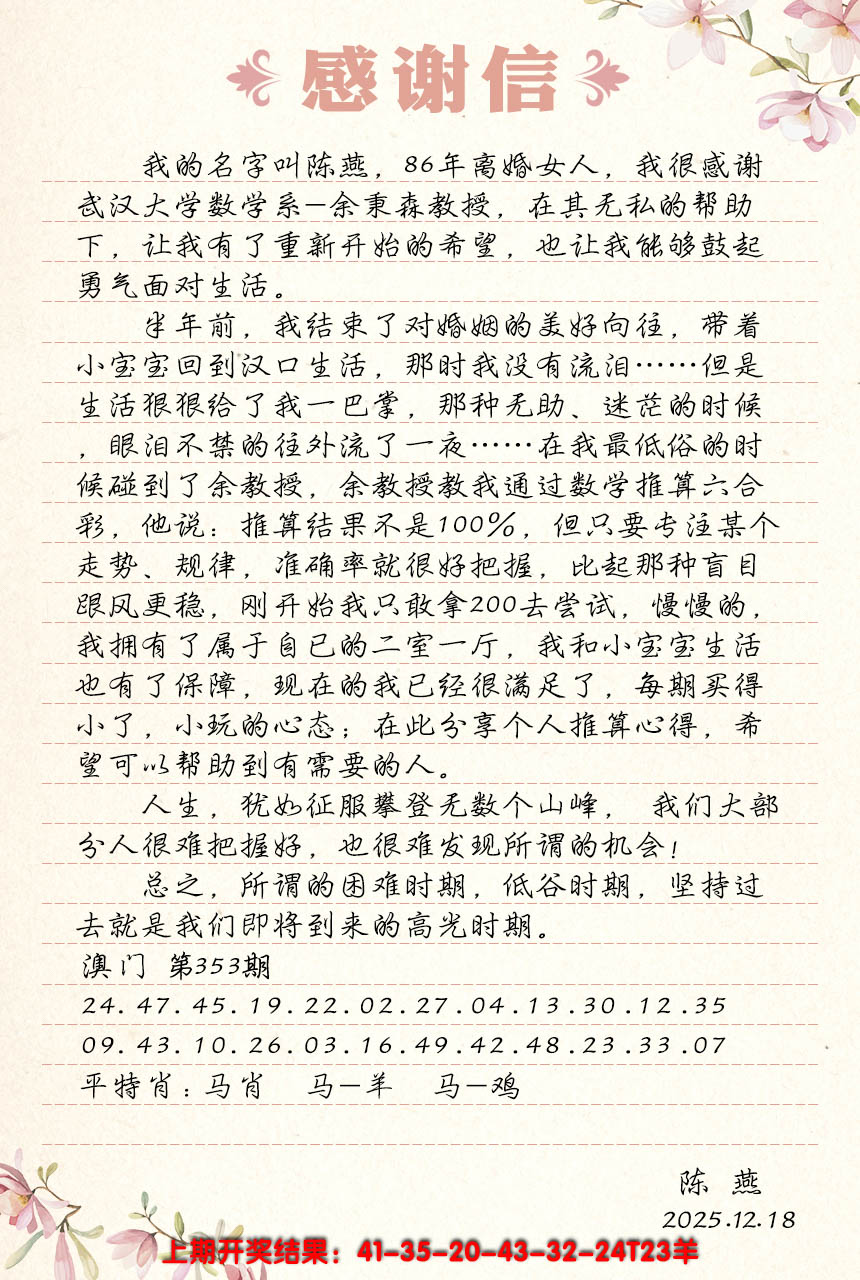 感谢信
我的名字叫陈燕，86年离婚女人，我很感谢
武汉大学数学系—余秉森教授，在其无私的帮助
下，让我有了重新开始的希望，也让我能够鼓起
勇气面对生活。
半年前，我结束了对婚姻的美好向往，带着
小宝宝回到汉口生活，那时我没有流泪……但是
生活狠狠给了我一巴掌，那种无助、迷茫的时候
，眼泪不禁的往外流了一夜……在我最低俗的时
候碰到了余教授，余教授教我通过数学推算六合
彩，他说：推算结果不是100%，但只要专注某个
走势、规律，准确率就很好把握，比起那种盲目
跟风更稳，刚开始我只敢拿200去尝试，慢慢的，
我拥有了属于自已的二室一厅，我和小宝宝生活
也有了保障，现在的我已经很满足了，每期买得
小了，小玩的心态；在此分享个人推算心得，希
望可以帮助到有需要的人。
人生，犹如征服攀登无数个山峰， 我们大部
分人很难把握好，也很难发现所谓的机会！
总之，所谓的困难时期，低谷时期，坚持过
去就是我们即将到来的高光时期。
澳门 第353期
24.47.45.19.22.02.27.04.13.30.12.35
09.43.10.26.03.16.49.42.48.23.33.07
平特肖：马肖 马—羊 马—鸡
陈 燕
2025.12.18
上期开奖结果：41-35-20-43-32-24T23羊